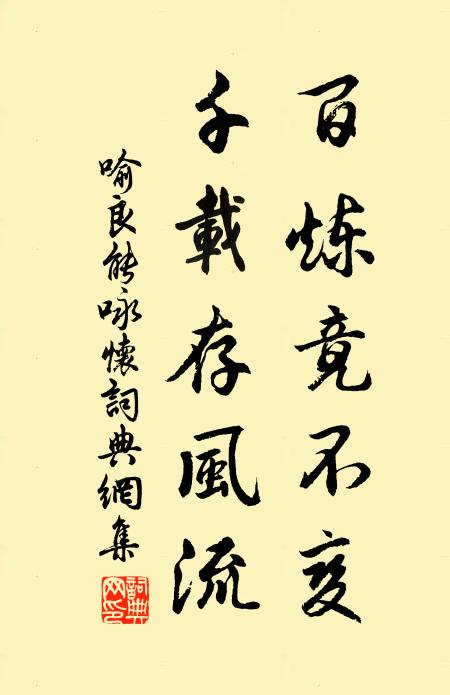 百炼竟不变
千載存風流
喻良能咏懷詞典網集
詞典网印